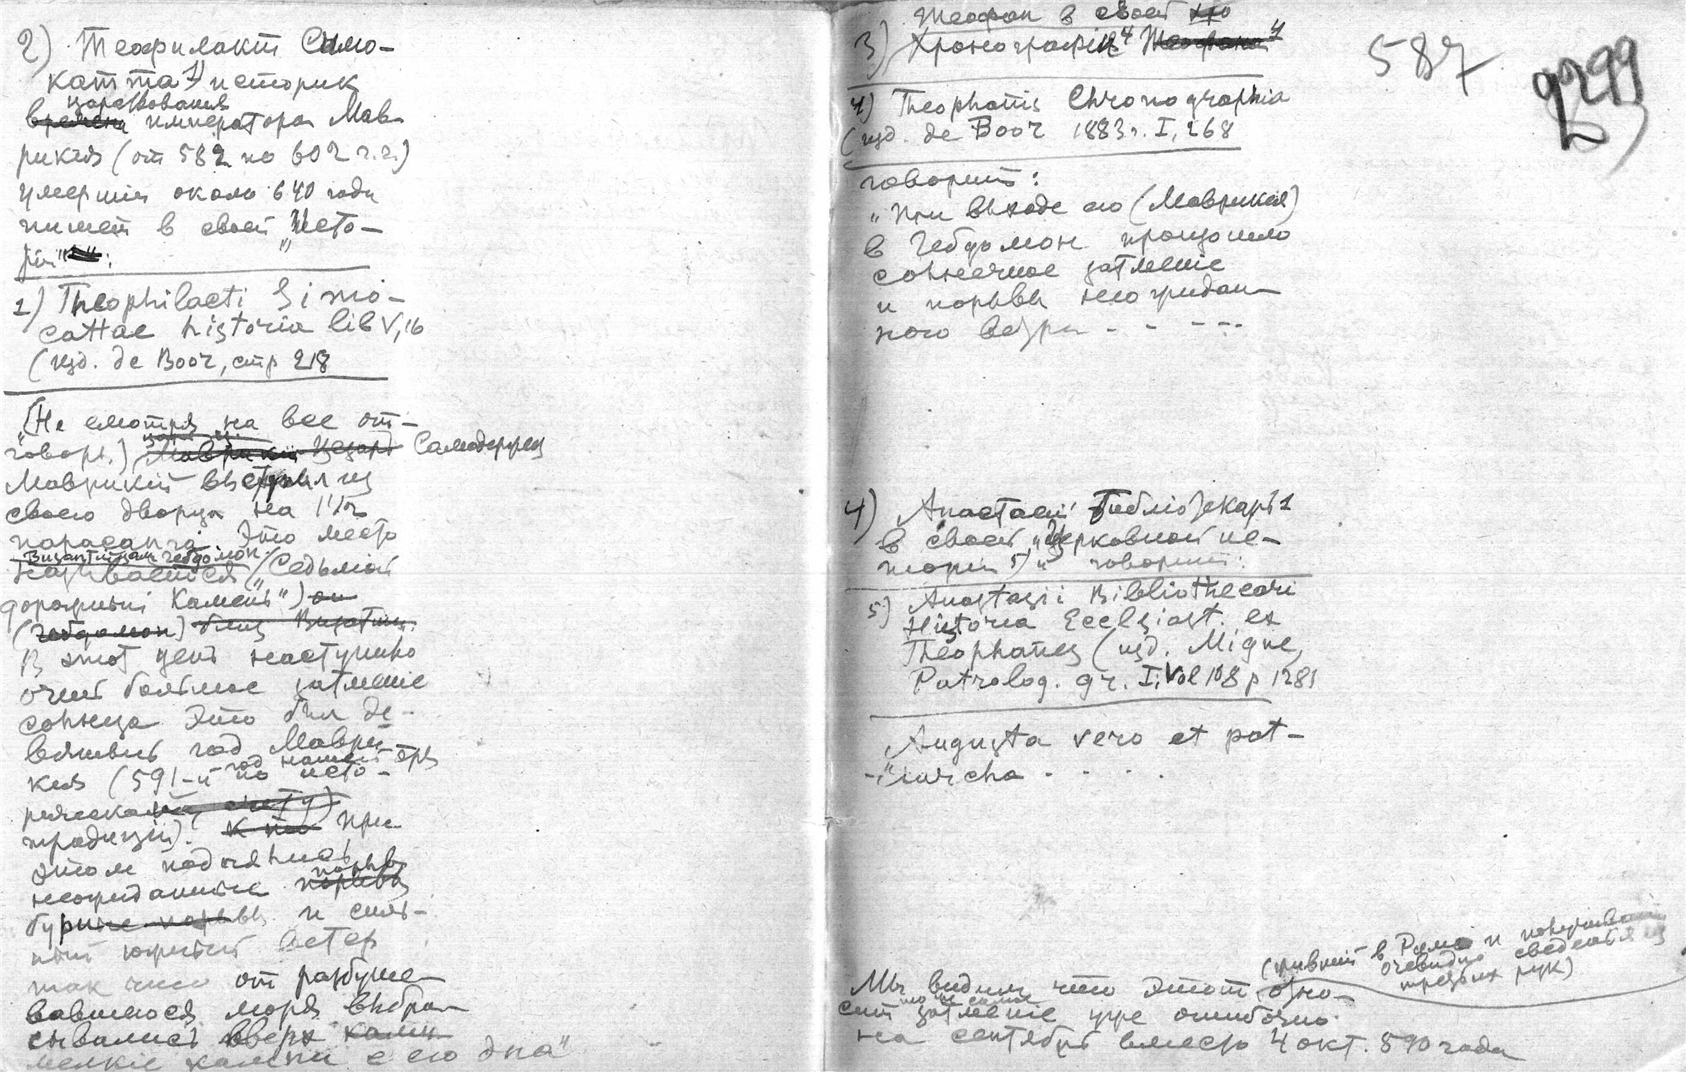 2) Теофилакт Симо-
катта 1) историк
царствования
времена императора Мав-
рикия (от 582 по 602 г.г.)
умерший около 640 года
пишет в своей „Исто-
рiи“:
1) Theophilacti Simo-
cattae historia lib V, 16
(изд. de Boor, стр 218
„(Не смотря на все от-
говоры.) Маврикiй Цезарь Самодержец
Маврикiй выступил из
своего дворца на 1 1/2
парасанга. Это место
Византiйцам Гебдомон
называется („Седьмой
дорожный Камень“) он
(Гебдомон) близ Византiи.
В этот день наступило
очень большое затменiе
солнца Это был де-
вятый год Маври-
кия (591-й год нашей эры
по исто-
рическому счету)
традицiи). К При
этом поднялись
неожиданные порывы
бурные порывы и силь-
ный южный ветер
так что от разбуше-
вавшегося моря выбра-
сывались вверх камн
мелкiе камни с его дна“
Теофан в своей
3) Хронографiи 4) Теофана 4
587
4) Theophanis Chronographia
(изд. de Boor 1883 г. I, 268
говорит:
„При выходе его (Маврикия)
в Гебдомон произошло
солнечное затменiе
и порывы неожидан-
ного ветра - - - - -
4) Анастасiй Библiотекарь
в своей „Церковной ис-
торiи 5)“ говорит:
5) Anastasii Bibliothecari
Historia Ecclesiast. ex
Theophanes (изд. Migne,
Patrolog. gr. I, Vol 108 p 1281
Augusta vero et pat-
-riarcha - - - -
(живший в Риме и
очевидно сведенья из
третьих рук)
Мы видим что этот отно-
сит то же самое
затменiе уже ошибочно
на сентябрь вместо 4 окт. 590 года